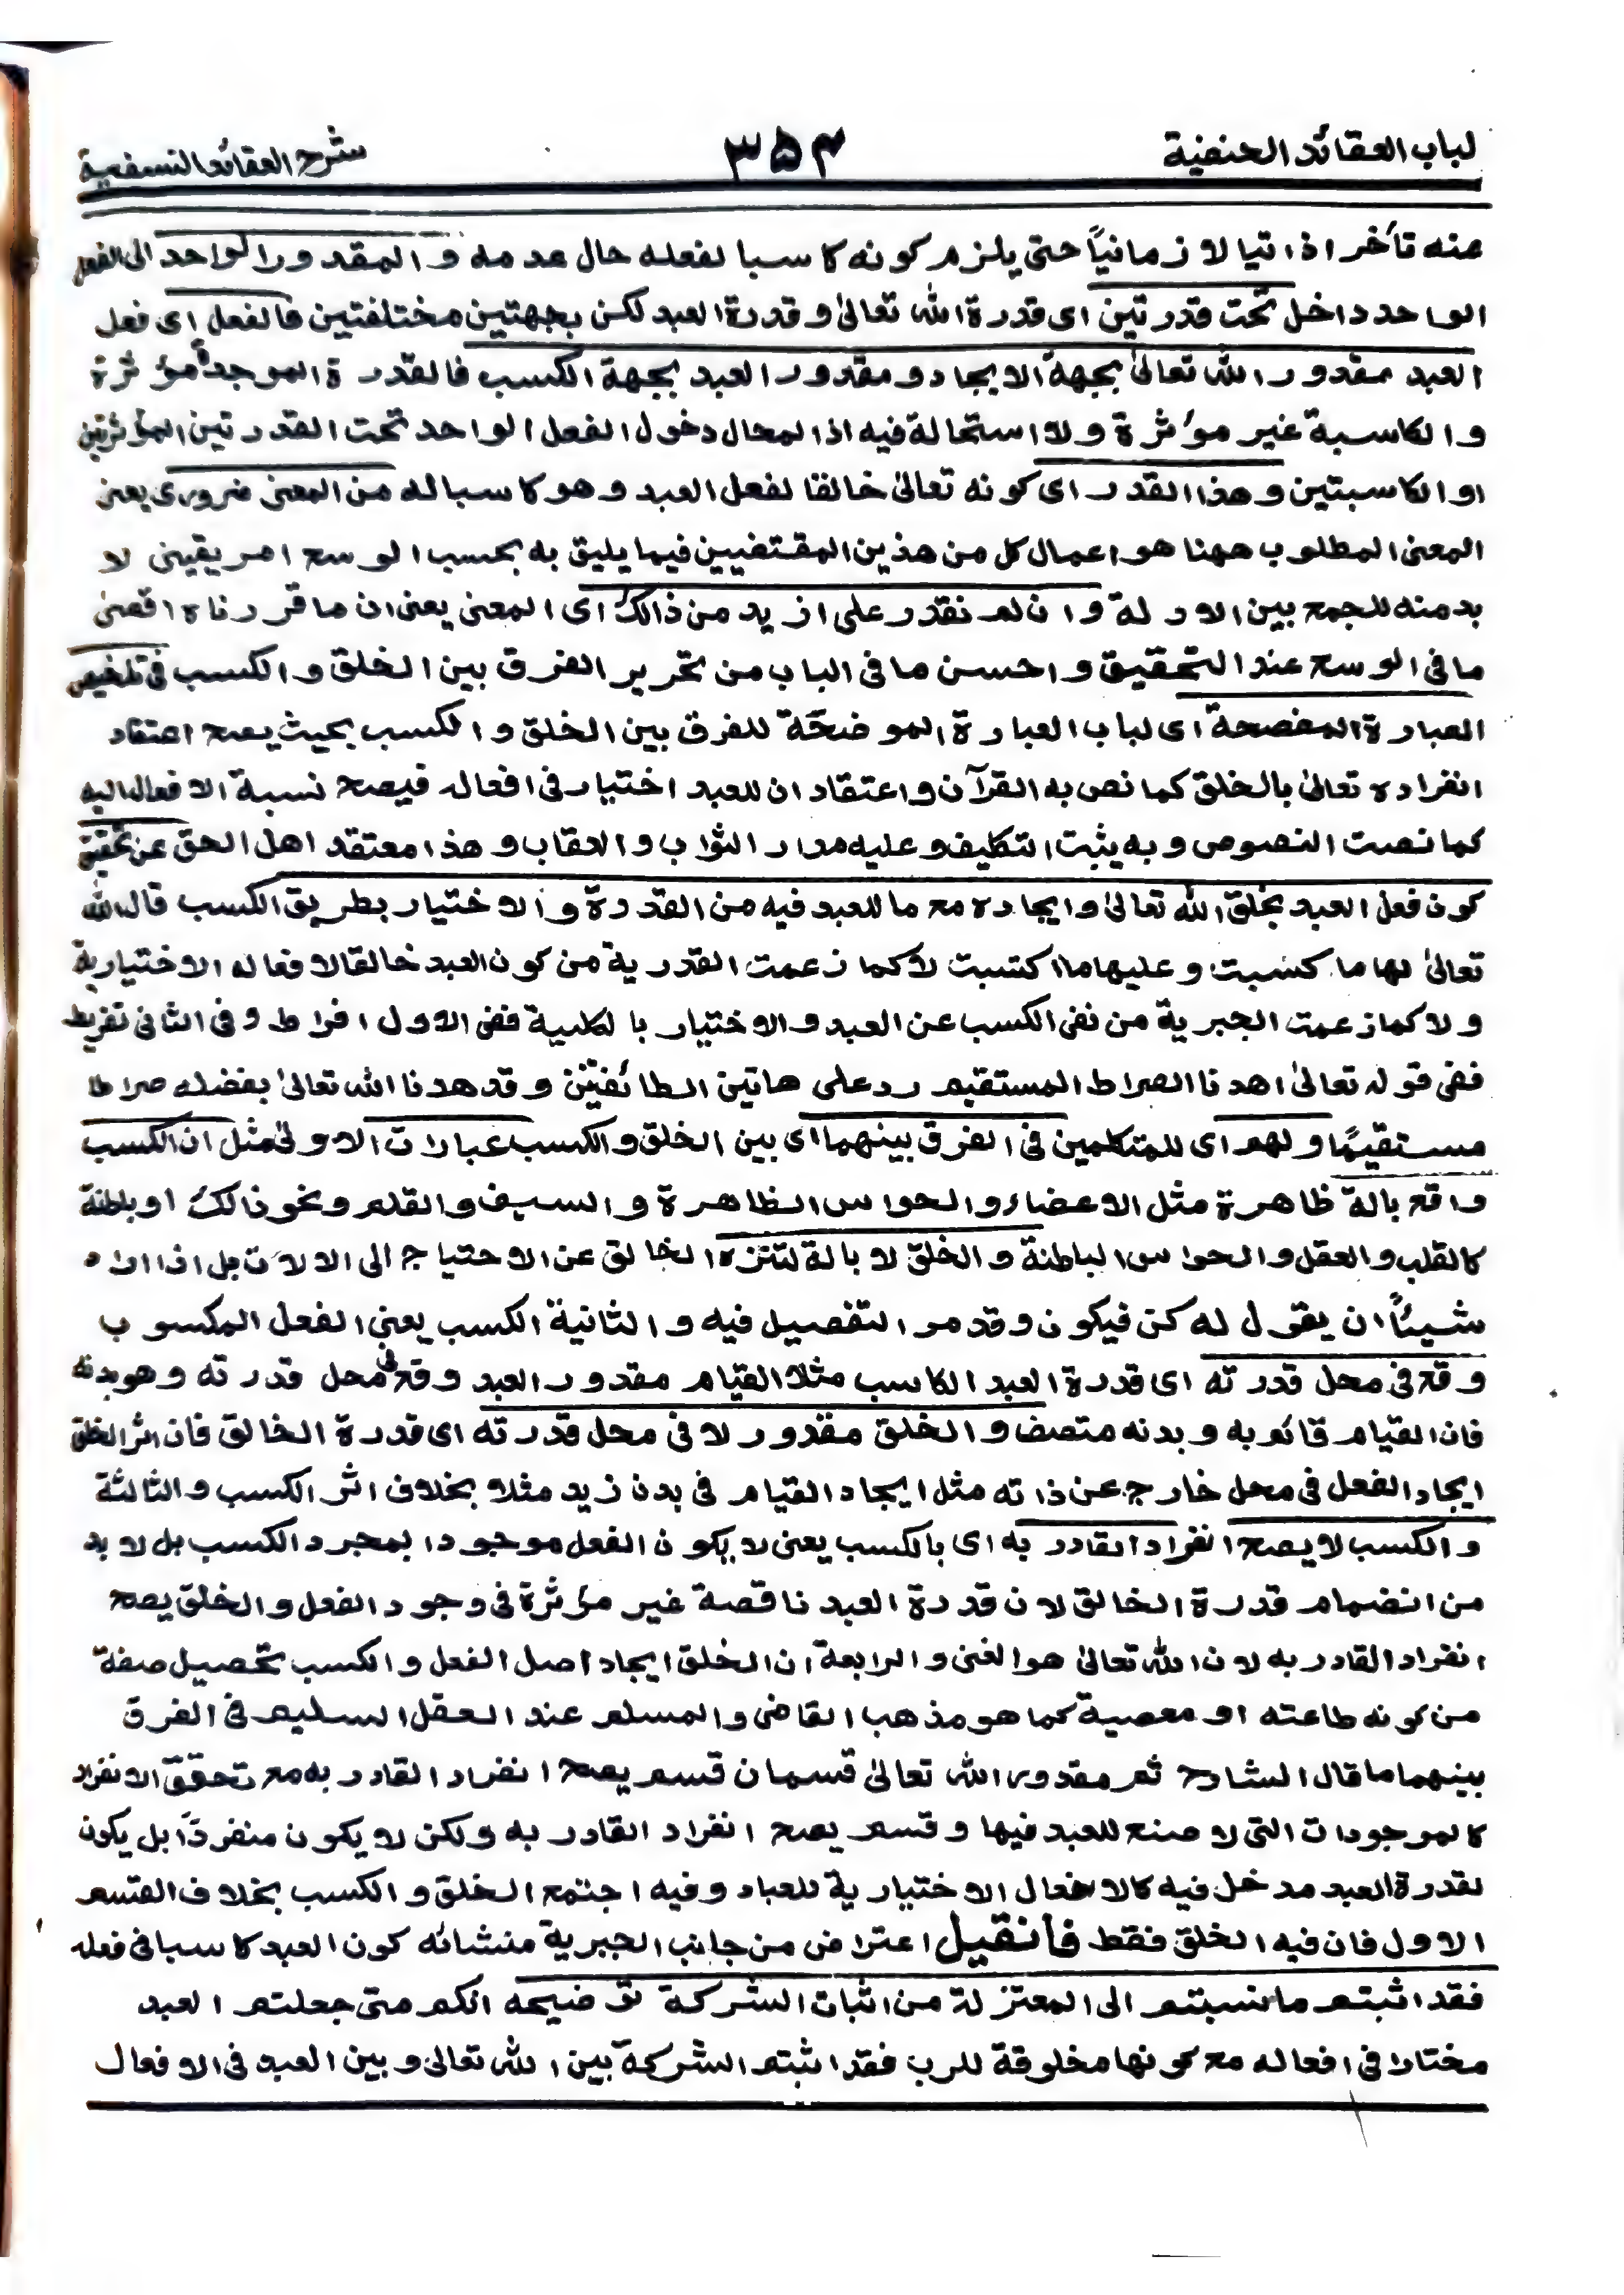 لباب العقائد الحنفية ۳۵۴ شرح العقائد النسفية
عنه تأخرا ذاتيا لا زمانياً حتى يلزم كونه كاسبا لفعله حال عدمه والمقدور الواحد الى الفعل
الواحد داخل تحت قدرتين اى قدرة الله تعالىٰ وقدرة العبد لكن بجهتين مختلفتين فالفعل اى فعل
العبد مقدور الله تعالىٰ بجهة الايجاد ومقدور العبد بجهة الكسب فالقدرة الموجدة مؤثرة
والكاسبة غير مؤثرة ولا استحالة فيه اذ المحال دخول الفعل الواحد تحت القدرتين المؤثرتين
او الكاسبتين وهذا القدر اى كونه تعالىٰ خالقا لفعل العبد وهو كاسبا له من المعنى ضرورى يعنى
المعنى المطلوب ههنا هو اعمال كل من هذين المقتضيين فيما يليق به بحسب الوسع امر يقينى لا
بد منه للجمع بين الادلة وان لم نقدر على ازيد من ذالك اى المعنى يعنى ان ما قررناه اقصى
ما فى الوسع عند التحقيق واحسن ما فى الباب من تحرير الفرق بين الخلق والكسب فى تلخيص
العبارة المفصحة اى لباب العبارة الموضحّة للفرق بين الخلق والكسب بحيث يصح اعتقاد
انفراده تعالىٰ بالخلق كما نص به القرآن واعتقاد ان للعبد اختيار فى افعاله فيصح نسبة الافعال اليه
كما نصت النصوص وبه يثبت التكليف وعليه مدار الثواب والعقاب وهذا معتقد اهل الحق عن تحقيق
كون فعل العبد بخلق الله تعالىٰ وايجاده مع ما للعبد فيه من القدرة والاختيار بطريق الكسب قال الله
تعالىٰ لها ما كسبت وعليها ما اكتسبت لا كما زعمت القدرية من كون العبد خالقا لافعاله الاختيارية
ولا كما زعمت الجبرية من نفى الكسب عن العبد والاختيار بالكلية ففى الاول افراط وفى الثانى تفريط
ففى قوله تعالىٰ اهدنا الصراط المستقيم رد على هاتين الطائفتين وقد هدنا الله تعالىٰ بفضله صراطا
مستقيمًا ولهم اى للمتكلمين فى الفرق بينهما اى بين الخلق والكسب عبارات الاولىٰ مثل ان الكسب
واقع بالة ظاهرة مثل الاعضاء والحواس الظاهرة والسيف والقلم ونحو ذالك او باطنة
كالقلب والعقل والحواس الباطنة والخلق لا بالة لتنزه الخالق عن الاحتياج الى الالات بل اذا اراد
شيئاً ان يقول له كن فيكون وقد مر التفصيل فيه والثانية الكسب يعنى الفعل المكسوب
وقع فى محل قدرته اى قدرة العبد الكاسب مثلا القيام مقدور العبد وقع فى محل قدرته وهو بدنه
فان القيام قائم به وبدنه متصف والخلق مقدور لا فى محل قدرته اى قدرة الخالق فان اثر الخلق
ايجاد الفعل فى محل خارج عن ذاته مثل ايجاد القيام فى بدن زيد مثلا بخلاف اثر الكسب والثالثة
والكسب لا يصح انفراد القادر به اى بالكسب يعنى لا يكون الفعل موجودا بمجرد الكسب بل لا بد
من انضمام قدرة الخالق لان قدرة العبد ناقصة غير مؤثرة فى وجود الفعل والخلق يصح
انفراد القادر به لان الله تعالىٰ هو الغنى والرابعة ان الخلق ايجاد اصل الفعل والكسب تحصيل صفة
من كونه طاعته او معصية كما هو مذهب القاضى والمسلم عند العقل السليم فى الفرق
بينهما ما قال الشارح ثم مقدور الله تعالىٰ قسمان قسم يصح انفراد القادر به مع تحقق الانفراد
كالموجودات التى لا صنع للعبد فيها وقسم يصح انفراد القادر به ولكن لا يكون منفردًا بل يكون
لقدرة العبد مدخل فيه كالافعال الاختيارية للعباد وفيه اجتمع الخلق والكسب بخلاف القسم
الاول فان فيه الخلق فقط فأن قيل اعتراض من جانب الجبرية منشائه كون العبد كاسبا فى فعله
فقد اثبتم ما نسبتم الى المعتزلة من اثبات الشركة توضيحه انكم متى جعلتم العبد
مختارا فى افعاله مع كونها مخلوقة للرب فقد اثبتم الشركة بين الله تعالىٰ وبين العبد فى الافعال